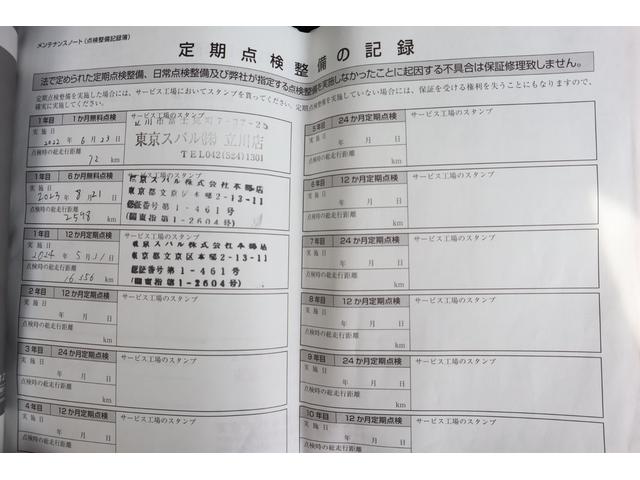 メンテナンスノート(点検整備記録簿)
定期点検整備の記録
法で定められた定期点検整備、日常点検整備及び弊社が指定する点検整備を実施しなかったことに起因する不具合は保証修理致しません。
定期点検整備を実施した場合には、サービス工場においてスタンプを貰ってください。定期点検整備を実施していない場合には、保証を受ける権利を失うことにもなりますので、
確実に実施してください。
1年目 1か月無料点検 サービス工場のスタンプ
実施日
2022年 6月 23日
点検時の総走行距離
72 km
東京スバル(株) 立川店
TEL042(524)1301
1年目 6か月無料点検 サービス工場のスタンプ
実施日
2023年 8月 21日
点検時の総走行距離
2598 km
東京スバル株式会社本郷店
東京都文京区本郷2-13-11
認証番号第1-461号
(関東指第1-2604号)
1年目 12か月定期点検 サービス工場のスタンプ
実施日
2024年 5月 31日
点検時の総走行距離
16356 km
東京スバル株式会社本郷店
東京都文京区本郷2-13-11
認証番号第1-461号
(関東指第1-2604号)
2年目 12か月定期点検 サービス工場のスタンプ
実施日
年 月 日
点検時の総走行距離
km
3年目 24か月定期点検 サービス工場のスタンプ
実施日
年 月 日
点検時の総走行距離
km
4年目 12か月定期点検 サービス工場のスタンプ
実施日
年 月 日
点検時の総走行距離
5年目 24か月定期点検 サービス工場のスタンプ
実施日
年 月 日
点検時の総走行距離
km
6年目 12か月定期点検 サービス工場のスタンプ
実施日
年 月 日
点検時の総走行距離
km
7年目 24か月定期点検 サービス工場のスタンプ
実施日
年 月 日
点検時の総走行距離
km
8年目 12か月定期点検 サービス工場のスタンプ
実施日
年 月 日
点検時の総走行距離
km
9年目 24か月定期点検 サービス工場のスタンプ
実施日
年 月 日
点検時の総走行距離
km
10年目 12か月定期点検 サービス工場のスタンプ
実施日
年 月 日
点検時の総走行距離
km